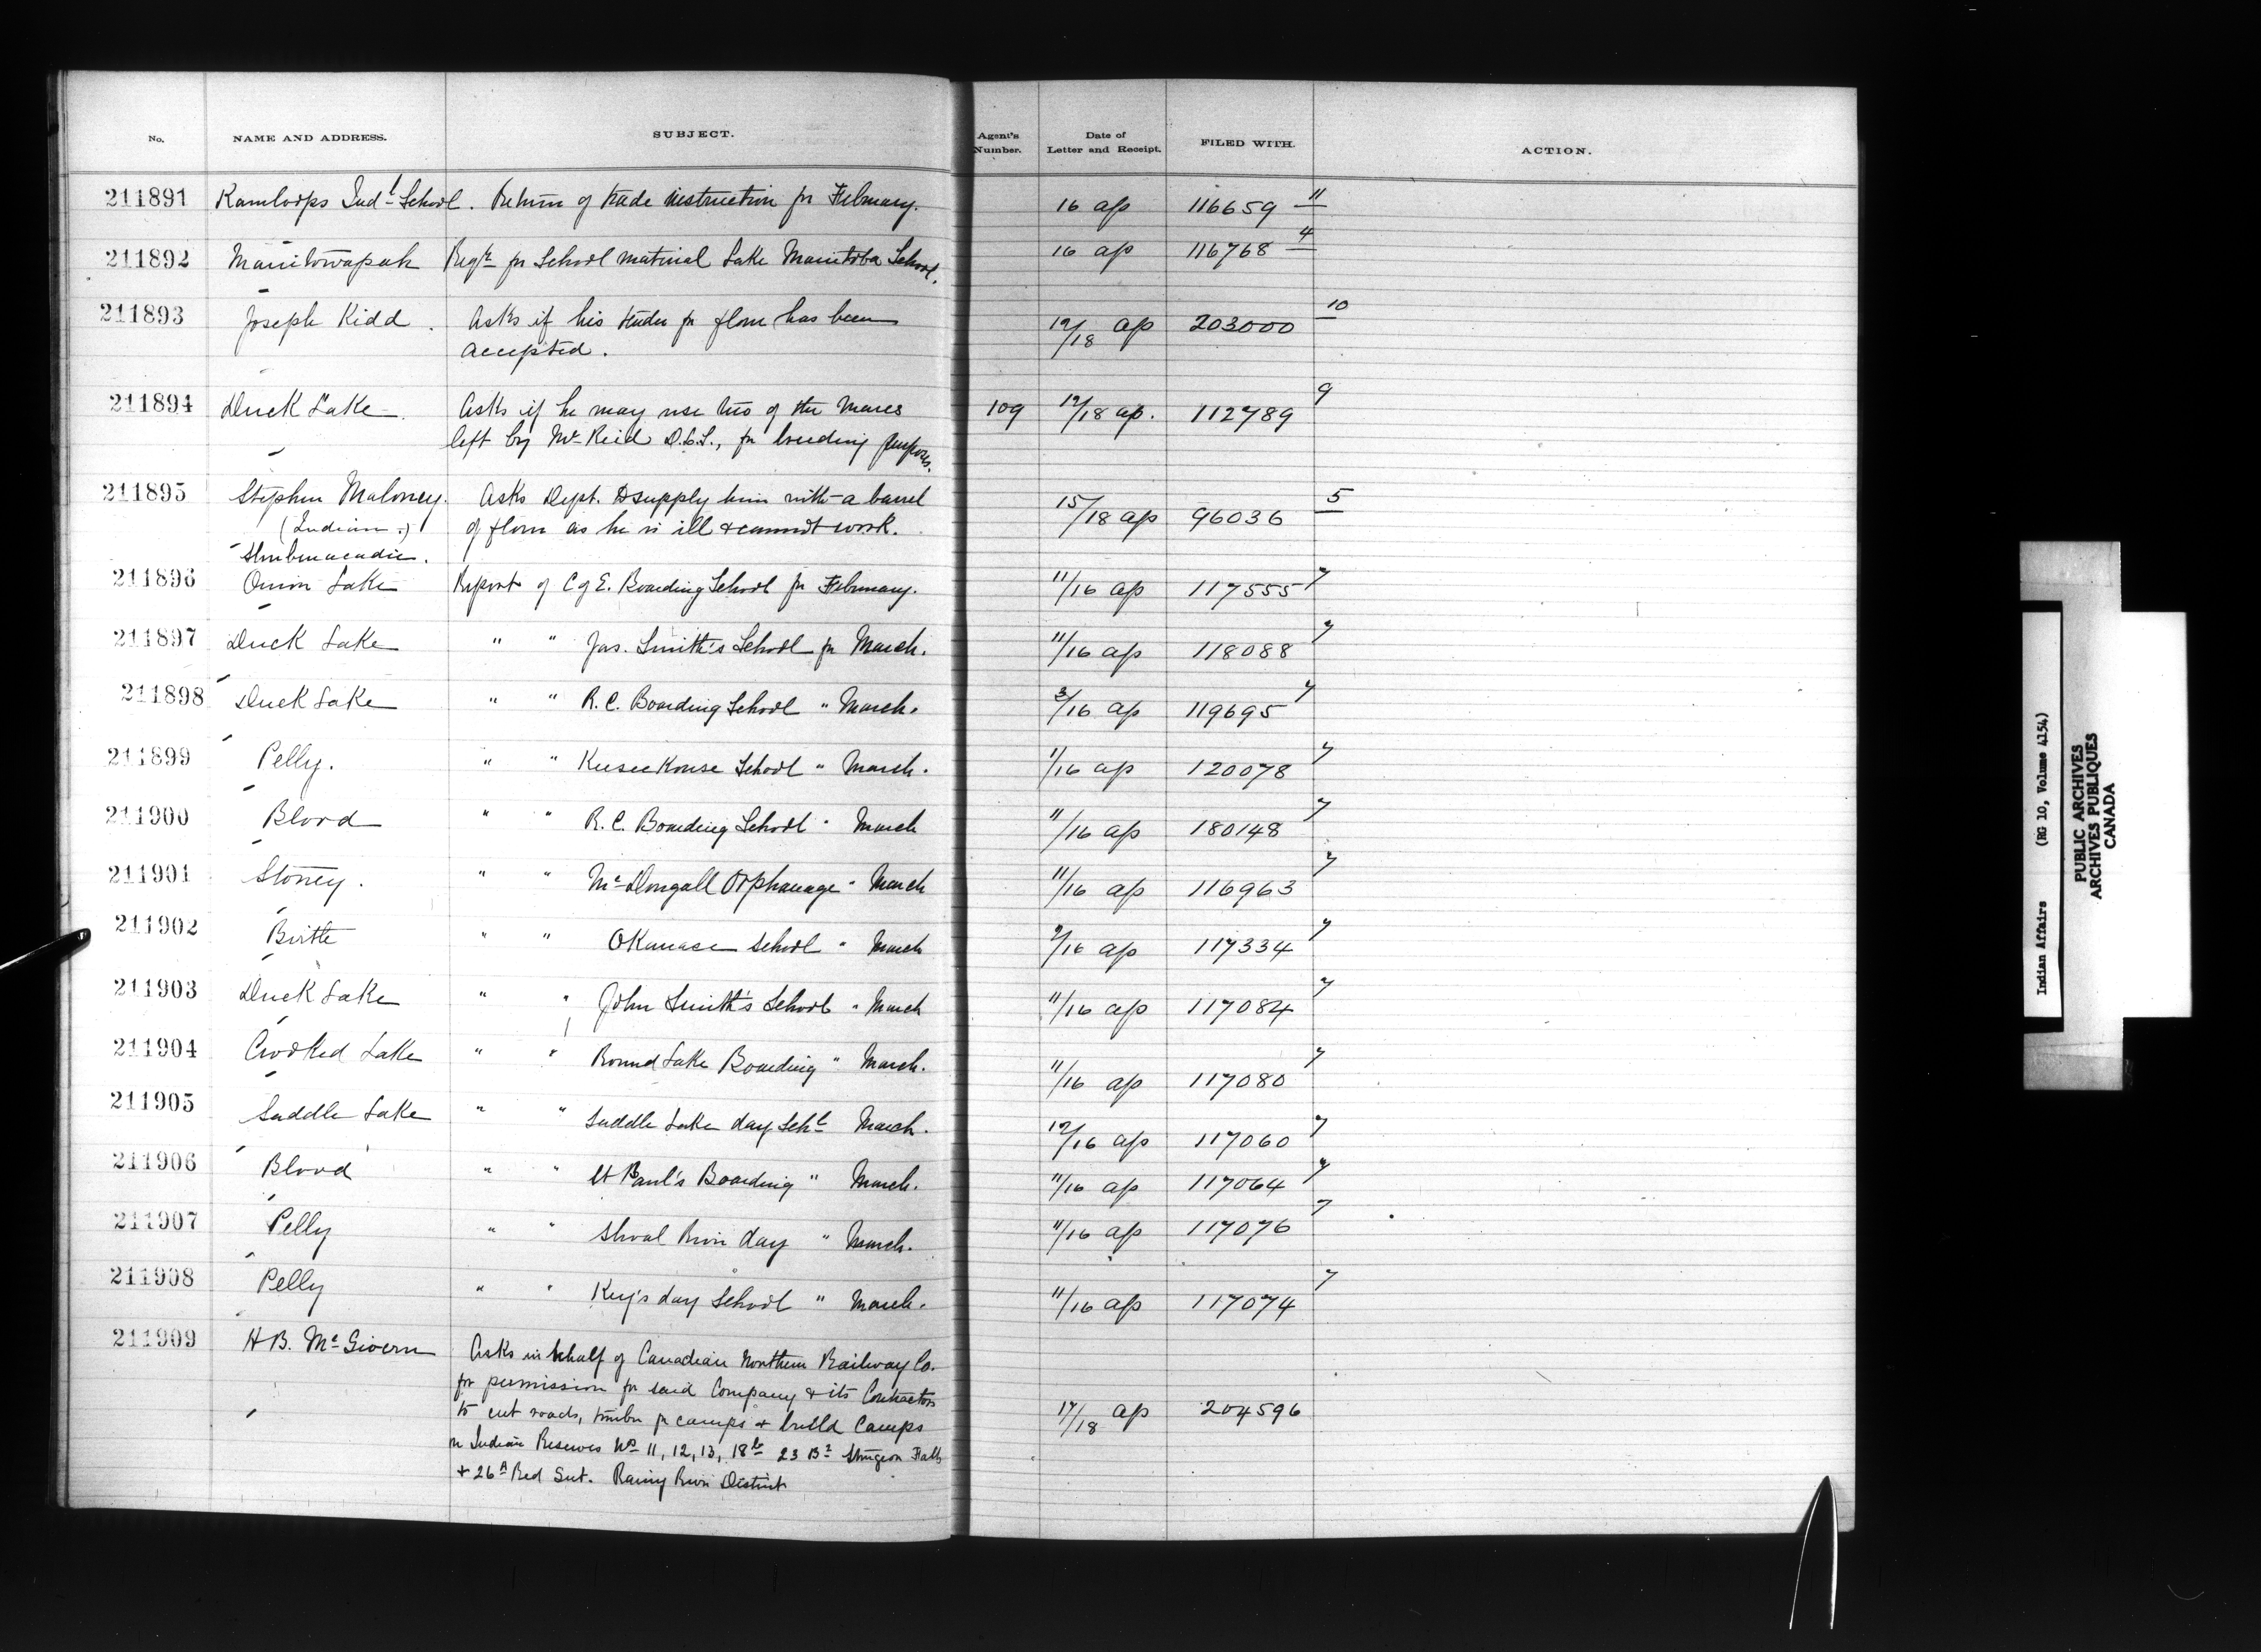 No. NAME AND ADDRESS. SUBJECT. Agent's Number. Date of Letter and Receipt. FILED WITH. ACTION.
211891 Kamloops Indl School. Return of trade instruction for February. 16 ap 116659 11
211892 Manitowapah Reqn for School material Lake Manitoba School. 16 ap 116768 4
211893 Joseph Kidd. Asks if his tender for flour has been 12/18 ap 203000 10
accepted.
211894 Duck Lake. Asks if he may use two of the mares 109 12/18 ap. 112789 9
left by Mr Reid D.L.S., for breeding purposes.
211895 Stephen Maloney. Asks Dept. to supply him with a barrel 15/18 ap 96036 5
(Indian.) of flour as he is ill & cannot work.
Shubenacadie.
211896 Onion Lake Report of C of E. Boarding School for February. 11/16 ap 117555 7
211897 Duck Lake " " Jas. Smith's School for March. 11/16 ap 118088 7
211898 Duck Lake " " R.C. Boarding School " March. 3/16 ap 119695 7
211899 Pelly. " " Keeseekouse School " March. 1/16 ap 120078 7
211900 Blood " " R.C. Boarding School " March 11/16 ap 180148 7
211901 Stoney. " " McDougall Orphanage " March 11/16 ap 116963 7
211902 Birtle " " Okanase School " March 9/16 ap 117334 7
211903 Duck Lake " " John Smith's School " March 11/16 ap 117084 7
211904 Crooked Lake " " Round Lake Boarding " March. 11/16 ap 117080 7
211905 Saddle Lake " " Saddle Lake day Schl March. 12/16 ap 117060 7
211906 Blood " " St Paul's Boarding " March. 11/16 ap 117064 7
211907 Pelly " " Shoal River day " March. 11/16 ap 117076 7
211908 Pelly " " Key's day School " March. 11/16 ap 117074 7
211909 H B. McGivern Asks in behalf of Canadian Northern Railway Co.
for permission for said Company & its Contractors
to cut roads, timber for camps & build Camps 17/18 ap 204596
on Indian Reserves Nos 11, 12, 13, 18 23 B Sturgeon Falls
& 26A Red Gut. Rainy River District
Indian Affairs (RG 10, Volume 4154)
PUBLIC ARCHIVES
ARCHIVES PUBLIQUES
CANADA